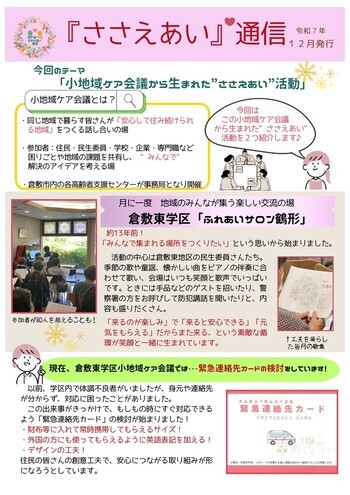 『ささえあい』通信
令和７年
１２月発行
今回のテーマ
「小地域ケア会議から生まれた”ささえあい”活動」
小地域ケア会議とは？
・同じ地域で暮らす皆さんが「安心して住み続けられ
る地域」をつくる話し合いの場
・参加者：住民・民生委員・学校・企業・専門職など
困りごとや地域の課題を共有し、”みんなで”
解決のアイデアを考える場
・倉敷市内の各高齢者支援センターが事務局となり開催
今回は
この小地域ケア会議
から生まれた”ささえあい”
活動を２つ紹介します♪
月に一度　地域のみんなが集う楽しい交流の場
倉敷東学区「ふれあいサロン鶴形」
約13年前！
「みんなで集まれる場所をつくりたい」という思いから始まりました。
活動の中心は倉敷東地区の民生委員さんたち。
季節の歌や童謡、懐かしい曲をピアノの伴奏に合
わせて歌い、会場はいつも笑顔と歌声でいっぱい
です。ときには手品などのゲストを招いたり、警
察署の方をお呼びして防犯講話を聞いたりと、内
容も盛りだくさん。
「来るのが楽しみ」で「来ると安心できる」「元
気をもらえる」だからまた来る、という素敵な循
環が笑顔と一緒に生まれています。
参加者が80人を超えることも！
↑工夫を凝らし
た毎月の歌集
現在、倉敷東学区小地域ケア会議では…緊急連絡先カードの検討をしています！
以前、学区内で体調不良者がいましたが、身元や連絡先
が分からず、対応に困ったことがありました。
この出来事がきっかけで、もしもの時にすぐ対応できる
よう「緊急連絡先カード」の検討が始まりました！
・財布等に入れて常時携帯してもらえるサイズ！
・外国の方にも使ってもらえるように英語表記を加える！
・デザインの工夫！
住民の皆さんの創意工夫で、安心につながる取り組みが形
になろうとしています。
緊急連絡先カード
EMERGENCY CARD
119